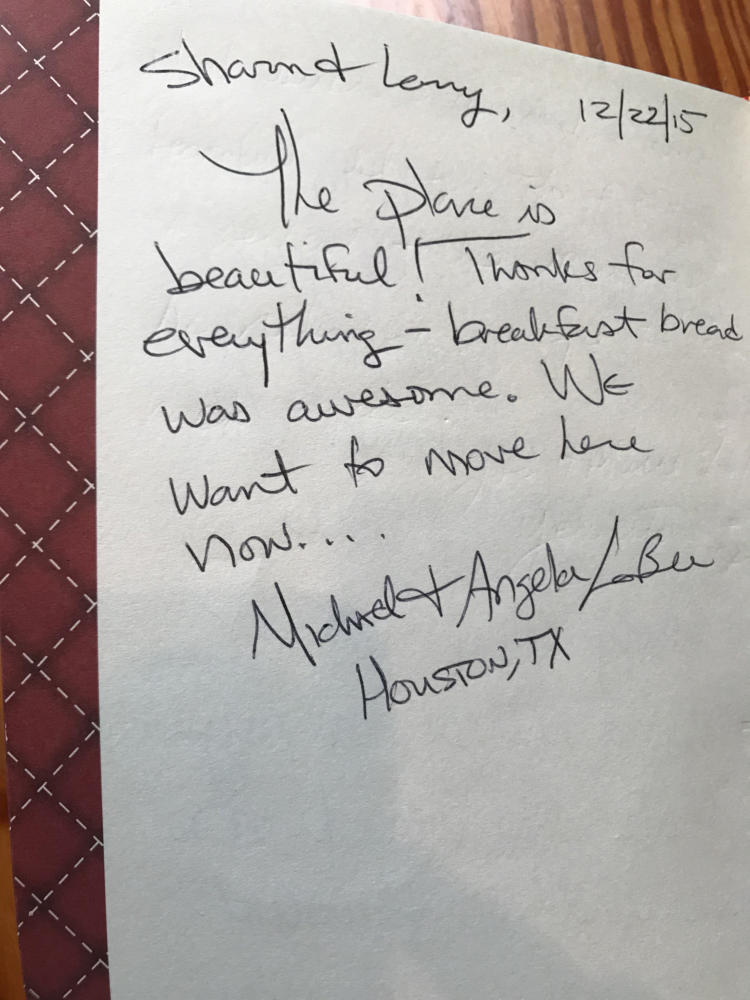 Sharon + Larry, 12/22/15
The place is
beautiful! Thanks for
everything - breakfast bread
was awesome. We
want to move here
now....
Michael + Angela LaBee
Houston, TX